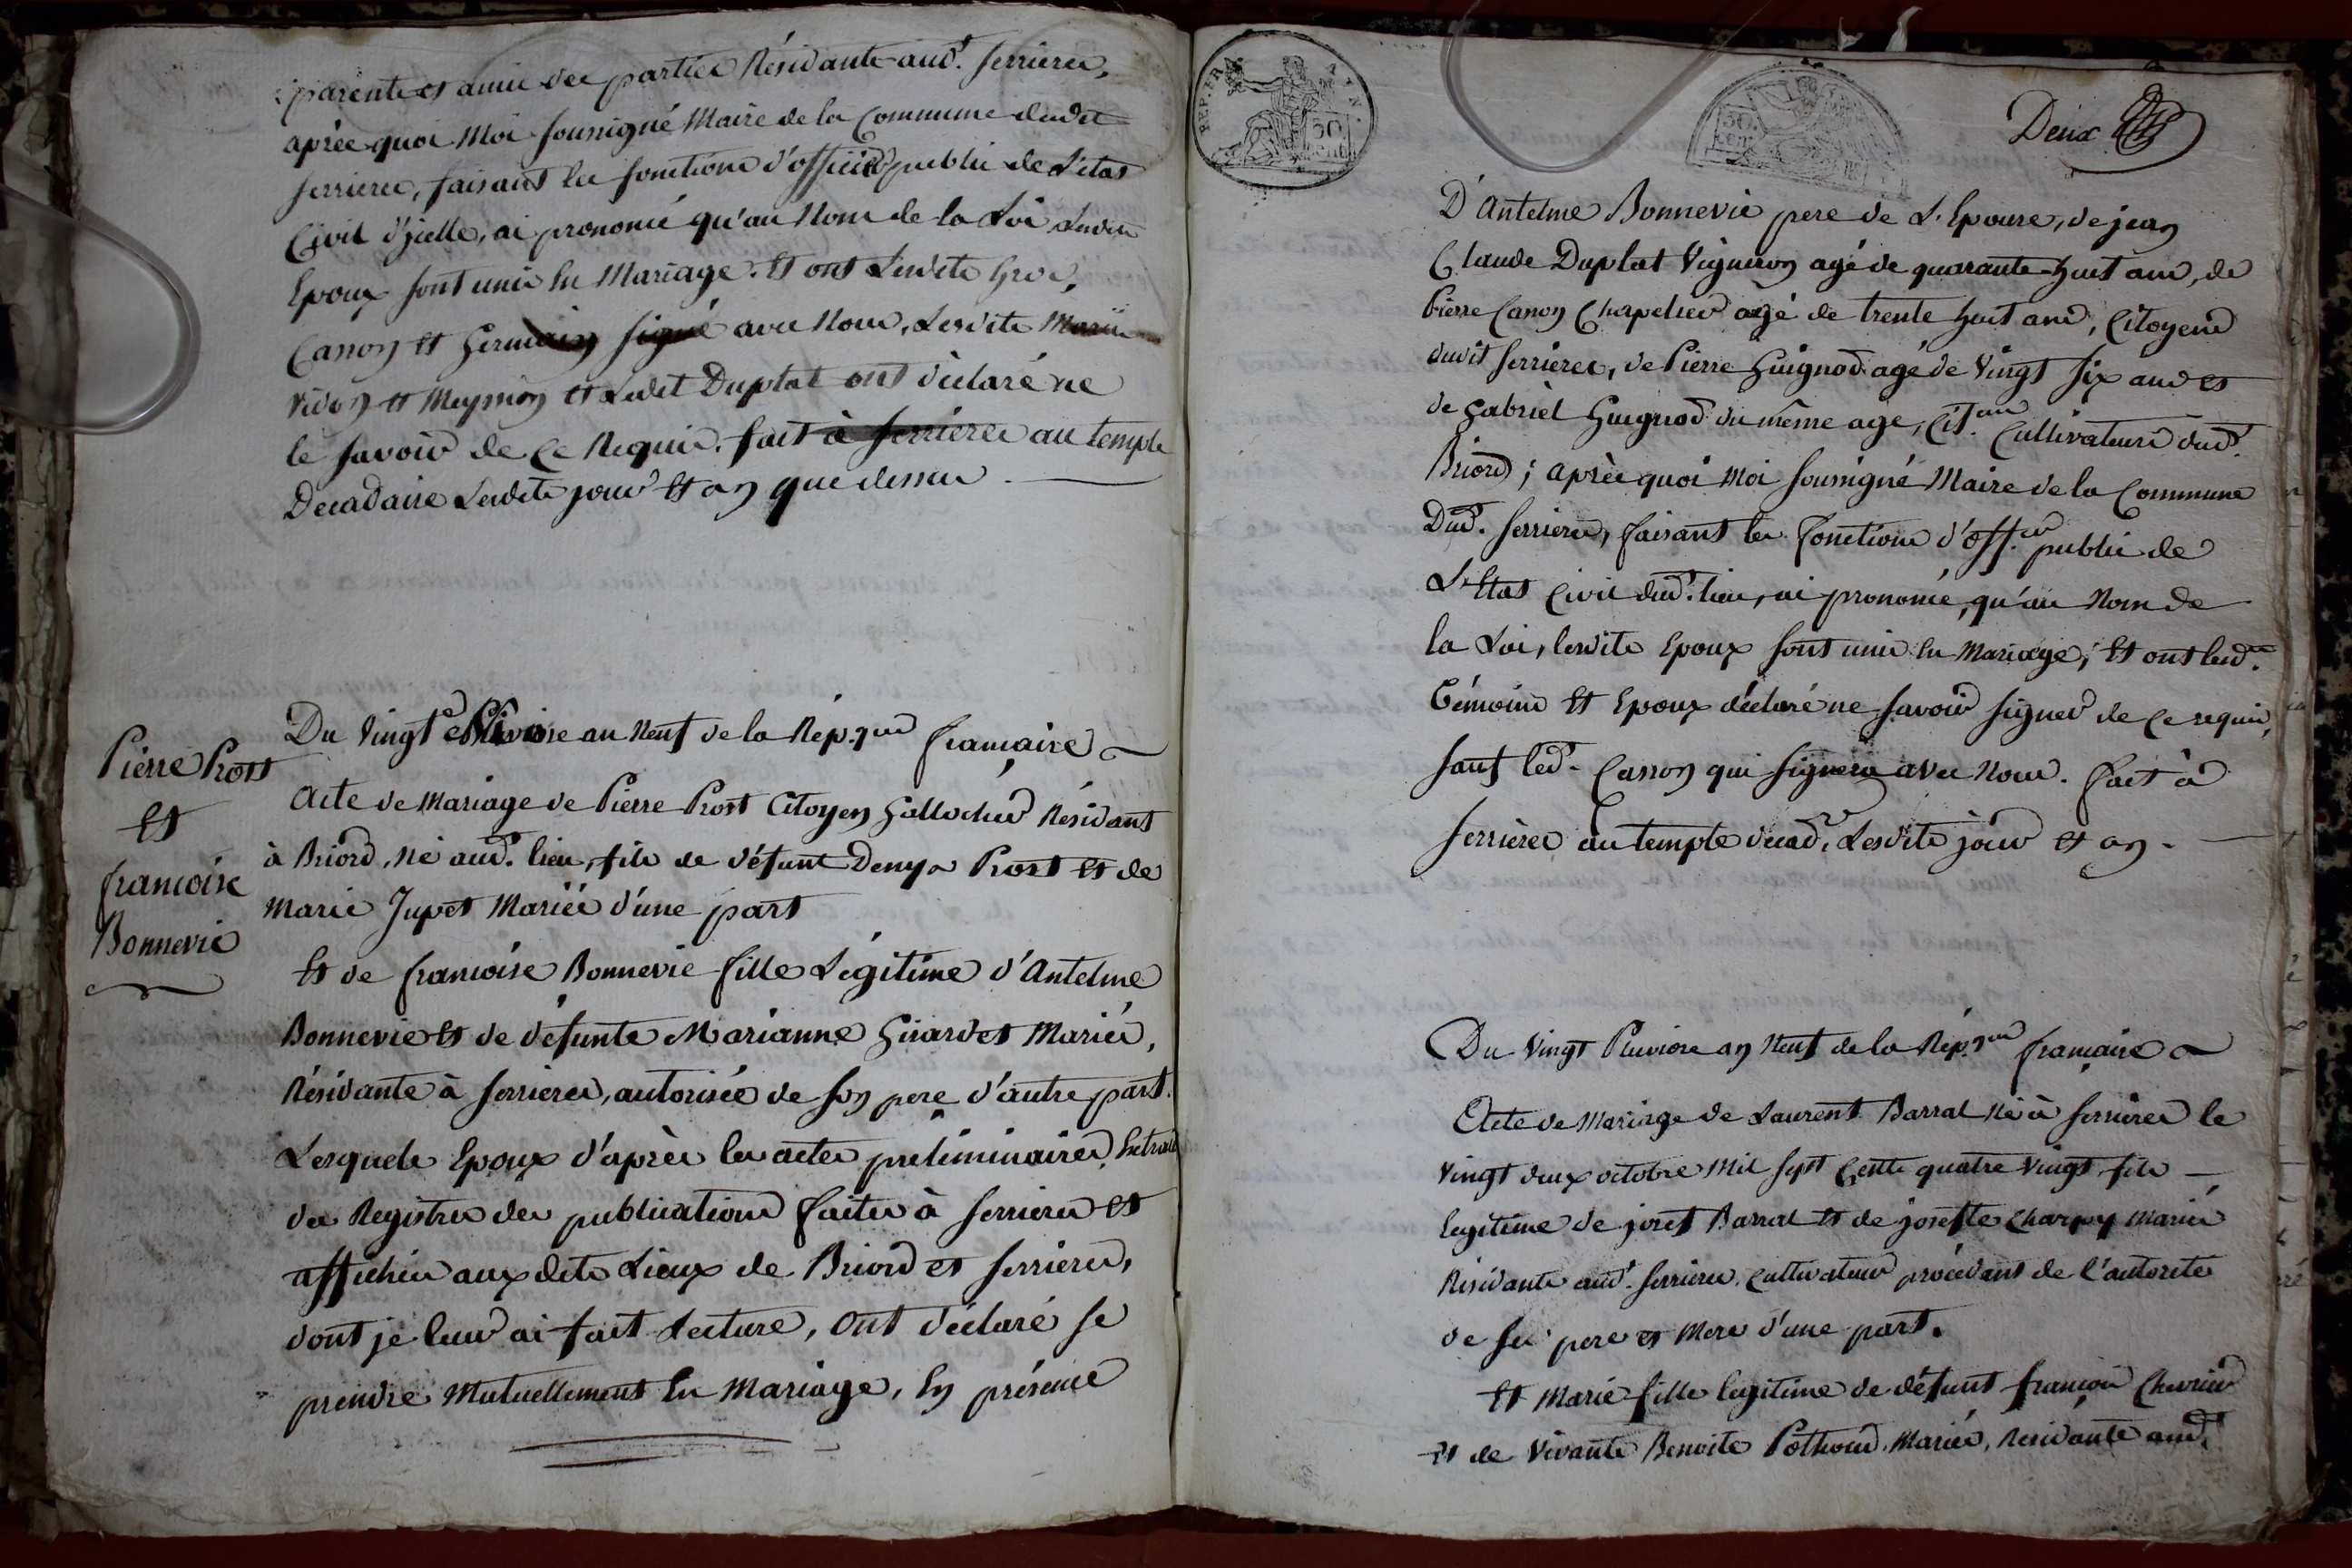 parents et amis des parties Résidants aud.t Serrieres,
après quoi Moi soussigné Maire de la Commune dudit
Serrieres, faisant les fonctions d'officier public de L'état
Civil d'jcelle, ai prononcé qu'au Nom de la Loi Lesdits
Epoux sont unis En Mariage. Et ont Lesdits Gros,
Canon et Germain signé avec Nous, Lesdits Mariés
Vidon et Meynion et Ledit Duplat ont déclaré ne
le savoir de Ce Requis. fait à Serrieres au temple
Decadaire Lesdits jour Et an que dessus
Pierre Prost
Et
francoise
Bonnevie
Du Vingt Pluviose an Neuf de la Rép.que française
Acte de Mariage de Pierre Prost Citoyen Gallocher Résidant
à Briord, Né aud.t lieu, fils de défunt Denys Prost Et de
Marie Jupet Mariés d'une part
Et de francoise Bonnevie fille Légitime d'Antelme
Bonnevie Et de défunte Marianne Girardet Mariés,
Résidante à Serrieres, autorisée de son pere d'autre part.
Lesquels Epoux d'après les actes préliminaires, Extraits
des Registres des publications faites à Serrieres et
affichées aux dits Lieux de Briord et Serrieres,
dont je leur ai fait Lecture, ont déclaré se
prendre Mutuellement En Mariage, En présence
REP. FRA
50
CENT.
Deux
D'Antelme Bonnevie pere de L'Epouse, de jean
Claude Duplat Vigneron agé de quarante huit ans, de
Pierre Canon Charpetier agé de trente huit ans, Citoyens
dudit Serrieres, de Pierre Guignod agé de Vingt Six ans et
de Gabriel Guignod du même age, Cit.ens Cultivateurs dud.t
Briord; après quoi Moi soussigné Maire de la Commune
Dud.t Serrieres, faisant les fonctions d'off.er public de
L'Etat Civil dud.t lieu, ai prononcé, qu'au Nom de
la Loi, lesdits Epoux sont unis En Mariage; Et ont lesd.ts
Témoins Et Epoux déclaré ne savoir signer de Ce requis,
sauf led.t Canon qui signera avec Nous. fait à
Serrieres au temple décad.re Lesdits jour et an.
Du Vingt Pluviose an Neuf de la Rép.que française
Acte de Mariage de Laurent Barral Né à Serrieres le
Vingt deux octobre Mil Sept Cents quatre Vingt, fils
legitime de joset Barral Et de josette Charpy Mariés
Résidants aud.t Serrieres, Cultivateur procédant de l'autorité
de ses pere et Mere d'une part.
Et Marie fille legitime de défunt françois Chevrier
Et de Vivante Benoite Pothoud, Mariés, Résidante aud.t